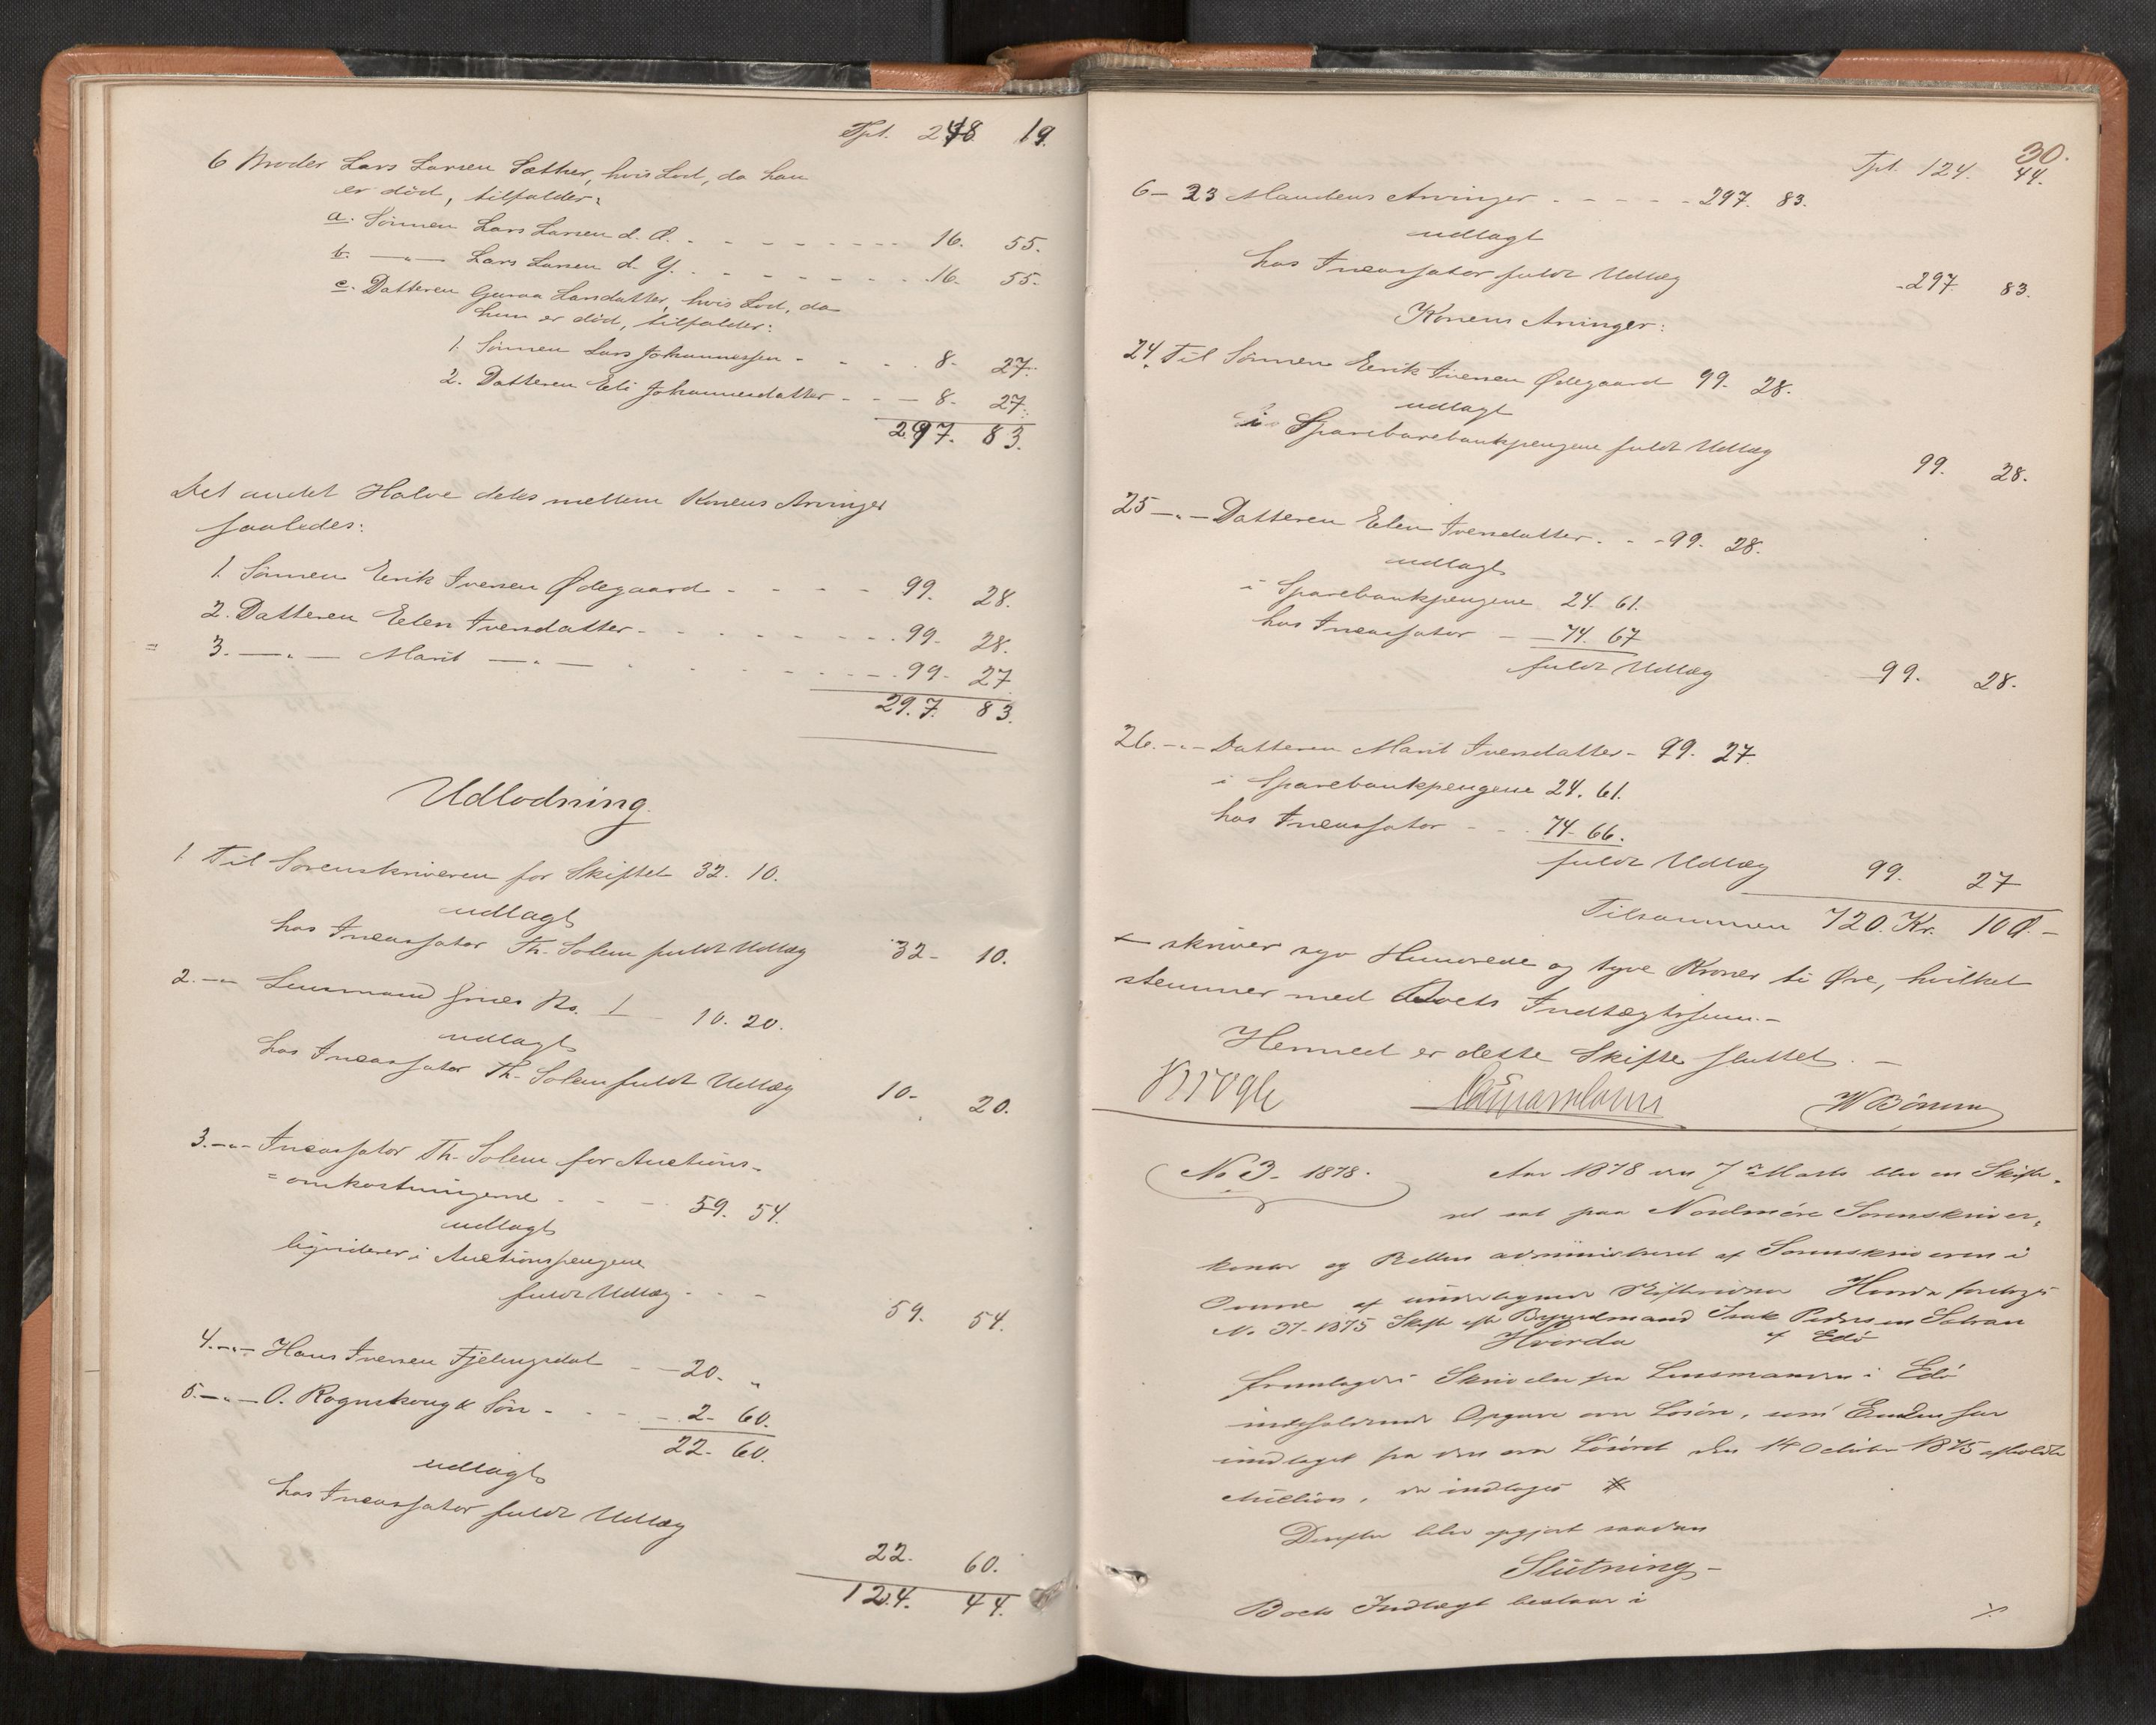 Tpt. 248 19.
6 Broder Lars Larsen Sæther, hvis Lod, da han
er död, tilfalder:
a. Sönnen Lars Larsen d. Æ. 16. 55.
b. —„— Lars Larsen d. Y. 16. 55.
c. Datteren Guroa Larsdatter, hvis Lod, da
hun er död, tilfalder:
1. Sönnen Lars Johannessen 8. 27.
2. Datteren Eli Johannesdatter 8. 27.
297. 83.
Det andet Halve deles mellem Konens Arvinger
saaledes:
1. Sönnen Eerik Iversen Ødegaard 99. 28.
2. Datteren Elen Iversdatter 99. 28.
3. —„— Marit —„— 99. 27
297. 83.
Udlodning.
1. Til Sorenskriveren for Skiftet 32. 10.
udlagt
hos Incassator Th. Solem fuldt Udlæg 32. 10.
2. —„— Lensmand 10. 20.
udlagt
hos Incassator Th. Solem fuldt Udlæg 10. 20.
3. —„— Incassator Th. Solem for Auctions-
=omkostningerne 59. 54.
udlagt
liqviderer i Auctionspengene
fuldt Udlæg 59. 54.
4. —„— Hans Iversen Fjelngsdal 20. „
5. —„— O. Rognskoug & Sön 2. 60.
22. 60.
udlagt
hos Incassator fuldt Udlæg
22. 60.
124. 44.
30.
Tpt. 124. 44.
6 – 23 Mandens Arvinger 297. 83.
udlagt
hos Incassator fuldt Udlæg 297 83.
Konens Arvinger:
24. Til Sönnen Eerik Iversen Ødegaard 99. 28.
udlagt
i Sparebarebankpengene fuldt Udlæg 99. 28.
25 —„— Datteren Elen Iversdatter 99. 28.
udlagt
i Sparebankpengene 24. 61.
hos Incassator 74. 67
fuldt Udlæg 99. 28.
26. —„— Datteren Marit Iversdatter 99. 27.
i Sparebankpengene 24. 61.
hos Incassator 74. 66.
fuldt Udlæg 99. 27
Tilsammen 720. Kr. 10 Ø.
skriver syv Hundrede og tyve Kroner ti Øre, hvilket
stemmer med Boets Indtægtssum.
Hermed er dette Skifte sluttet.
Krogh W Bönum
No 3 – 1878. Aar 1878 den 7de Marts blev en Skifte-
ret sat paa Nordmöre Sorenskriver-
kontor og Retten administreret af Sorenskriveren i
af undertegnede Skiftevidner Hvorda foretoges
No 37 – 1875 Skifte efter Bygselmand Isak Pedersen Solvan
Hvorda af Edö
fremlagdes Skrivelse fra Lensmanden i Edö
indeholdende Opgave over Lösöre, som Enken har
indtaget fra den over Lösöret den 14 October 1875 afholdte
Auction, der indtages
Derefter blev opgjort saadan
Slutning
Boets Indtægt bestaar i
%